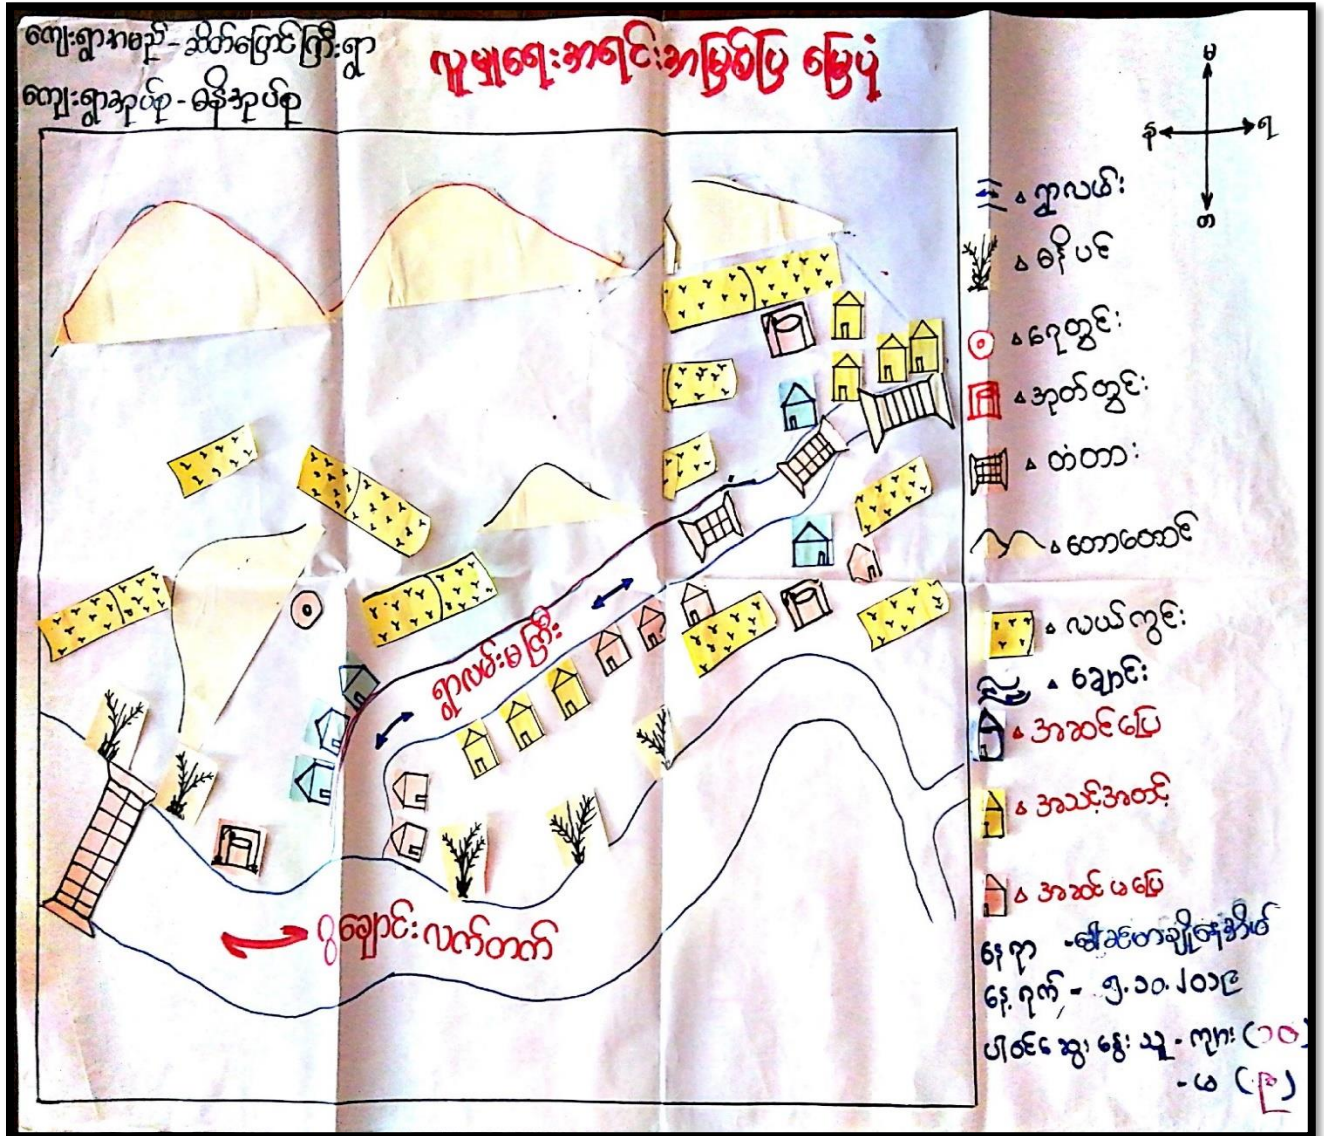 ကျေးရွာအမည် - ဆိတ်ပြောင်ကြီးရွာ
ကျေးရွာအုပ်စု - ဓနိအုပ်စု
လူမှုရေးအရင်းအမြစ်ပြ မြေပုံ
မ
န ရ
တ
ရွာလမ်း
ဓနိပင်
ရေတွင်း
အုတ်တွင်း
တံတား
တောတောင်
လယ်ကွင်း
ချောင်း
အဆင်ပြေ
အသင့်အတင့်
အဆင်မပြေ
ရွာလမ်းမကြီး
ချောင်းလက်တက်
နေရာ -
နေ့ရက် - ၅.၁၀.၂၀၁၉
ပါဝင်ဆွေးနွေးသူ - ကျား (၁၀)
- မ